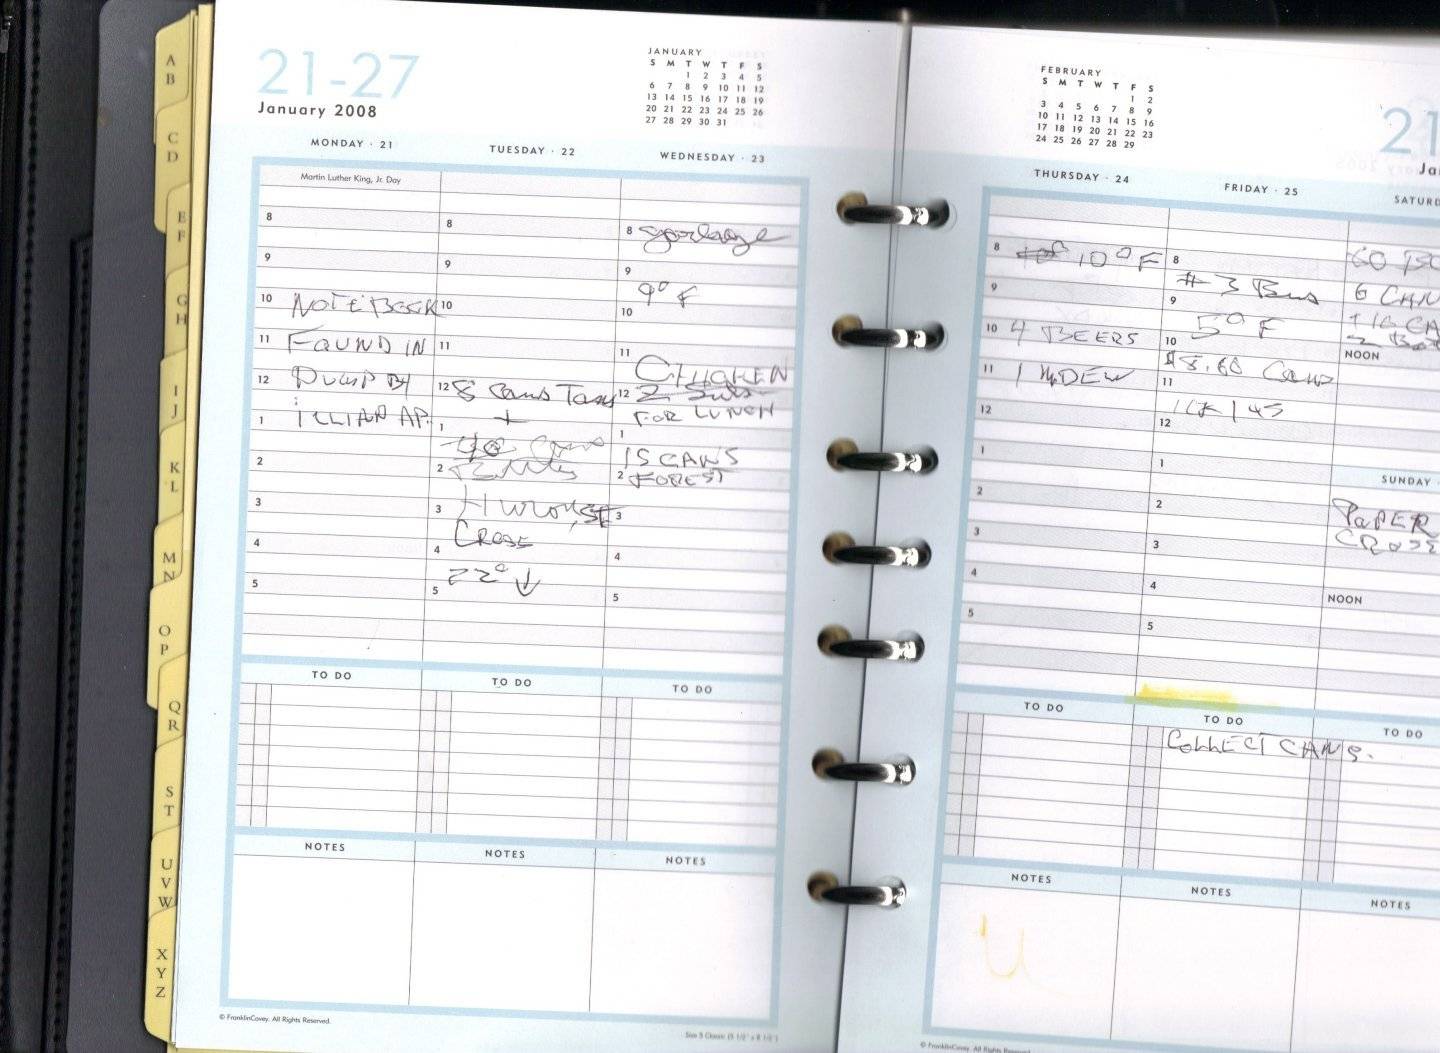 21-27
January 2008
JANUARY
S M T W T F S
1 2 3 4 5
6 7 8 9 10 11 12
13 14 15 16 17 18 19
20 21 22 23 24 25 26
27 28 29 30 31
MONDAY · 21
TUESDAY · 22
WEDNESDAY · 23
Martin Luther King, Jr. Day
8
9
10 NOTEBOOK
11 FOUND IN
12 DUMP BY
1 AP.
2
3
4
5
8
9
10
11
12 8 cans
+
1
2
3
CROSS
4
22° ↓
5
8 garbage
9
9° F
10
11
CHICKEN
12 2
FOR LUNCH
1
15 CANS
2 FOREST
3
4
5
TO DO
TO DO
TO DO
NOTES
NOTES
NOTES
© FranklinCovey. All Rights Reserved.
Size 5 Classic (5 1/2" x 8 1/2")
FEBRUARY
S M T W T F S
1 2
3 4 5 6 7 8 9
10 11 12 13 14 15 16
17 18 19 20 21 22 23
24 25 26 27 28 29
21
Ja
THURSDAY · 24
FRIDAY · 25
SATURD
8 10° F
9
10 4 BEERS
11 1 DEW
12
1
2
3
4
5
8
# 3 Bus
9
5° F
10
$8.60 Cans
11
12
1
2
3
4
5
60
6 CAN
NOON
SUNDAY ·
PAPER
CROSS
NOON
TO DO
TO DO
COLLECT CANS.
TO DO
NOTES
NOTES
NOTES
© FranklinCovey. All Rights Reserved.
A
B
C
D
E
F
G
H
I
J
K
L
M
N
O
P
Q
R
S
T
U
V
W
X
Y
Z